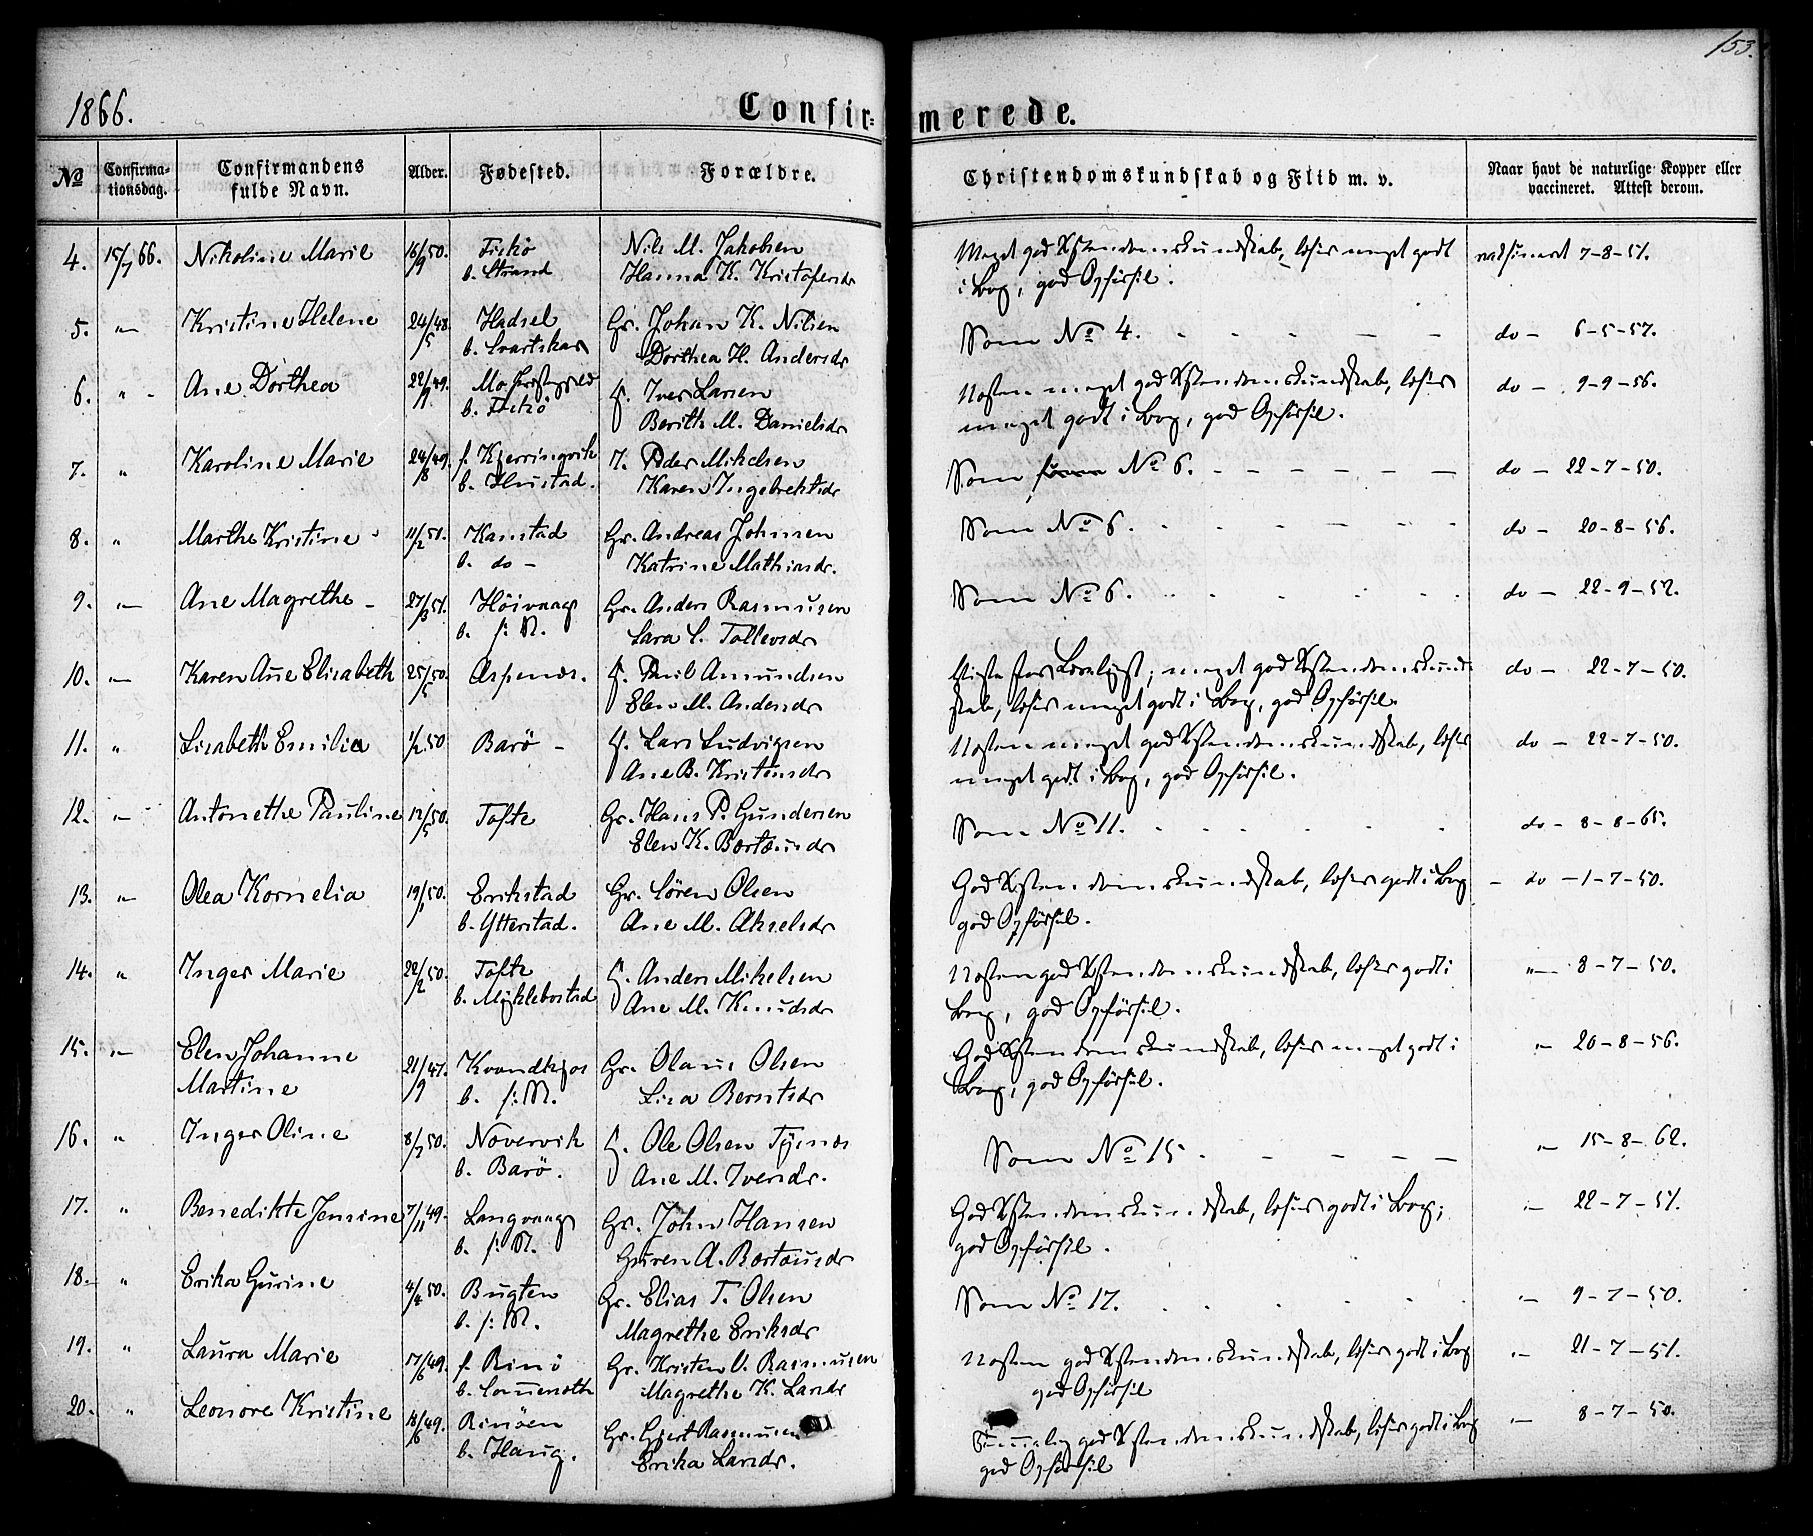 153.
1866.
Confir=merede.
No Confirmationsdag. Confirmandens fulde Navn. Alder. Fødested. Forældre. Christendomskundskab og Flid m. v. Naar havt de naturlige Kopper eller vaccineret. Attest derom.
4. 15/7 66. Nikoline Marie 16/9 50. Fiskø Nils M. Jakobsen Meget god Xstendomskundskab, læser meget godt vaksineret 7-8-51.
b. Strand Hanna K. Kristofersdr i Bog, god Opførsel.
5. " Kristine Helene 24/5 48. Hadsel Gr. Johan K. Nilsen Som No 4. do - 6-5-57.
b. Svartskar Dorthea H. Andersdr
6. " Ane Dorthea 22/9 49. Mo Præstegjeld G. Iver Larsen Næsten meget god Xstendomskundskab, læser do - 9-9-56.
b. Fiskø Berith M. Danielsdr meget godt i Bog, god Opførsel.
7. " Karoline Marie 24/8 49. f. Kjerringvik I. Peder Mikelsen Som No 6. do - 22-7-50.
b. Hustad. Karen Ingebrektsdr
8. " Marthe Kristine 11/2 51. Kanstad Gr. Andreas Johnsen Som No 6. do - 20-8-56.
b. do - Katrine Mathiasdr.
9. " Ane Magrethe 27/3 51. Höivaag Gr. Anders Rasmusen Som No 6. do - 22-9-52.
b. f: N. Sara S. Tollevsdr
10. " Karen Ane Elisabeth 25/5 50. Aspenæs. G. Paul Amundsen meget god Xstendomskund- do - 22-7-50.
Elen M. Andersdr skab, læser meget godt i Bog, god Opførsel.
11. " Lisabeth Emilie 1/2 50 Barö - G. Lars Ludvigsen Næsten meget god Xstendomskundskab, læser do - 22-7-50.
Ane B. Kristensdr meget godt i Bog, god Opførsel.
12. " Antonethe Pauline 12/5 50. Tofte Gr. Hans P. Gundersen Som No 11. do - 8-8-65.
Elen K. Bertæusdr
13. " Olea Kornelia 19/1 50. Erikstad Gr. Sören Olsen God Xstendomskundskab, læser godt i Bog - do - 1-7-50.
b. Ytterstad. Ane M. Akselsdr god Opførsel.
14. " Inger Marie 22/2 50. Tofte G. Anders Mikelsen Næsten god Xstendomskundskab, læser godt i " 8-7-50.
b. Myklebostad Ane M. Knudsdr Bog, god Opførsel.
15. " Elen Johanne 21/9 47. Kvandkjos Gr. Olaus Olsen God Xstendomskundskab, læser meget godt i " 20-8-56.
Martine b. f: N. Lisa Berntsdr Bog, god Opførsel.
16. " Inger Oline 8/3 50. Növervik G. Ole Olsen Tjenæs Som No 15 " 15-8-62.
b. Barö. Ane M. Iversdr.
17. " Benedikte Jensine 7/11 49. Langvaag Gr. John Hansen God Xstendomskundskab, læser godt i Bog; " 22-7-51.
b. f: N. Guren A. Bertæusdr god Opførsel.
18. " Erika Gurine 4/4 50. Bugten Gr. Elias T. Olsen Som No 17. " 9-7-50.
b. f: N. Magrethe Eriksdr
19. " Laura Marie 17/6 49. f. Rinö Gr. Kristen O. Rasmusen Næsten god Xstendomskundskab, læser godt i Bog " 21-7-51.
Magrethe K. Larsdr god Opførsel
20. " Leonore Kristine 18/6 49. Rinöen Gr. Gjert Rasmusen god Xstendomskundskab, læser godt i Bog " 8-7-50.
b. Haug. Erika Larsdr. god Opførsel